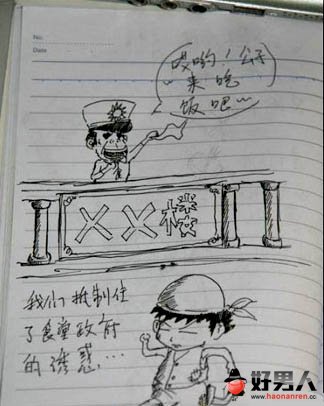 No.
Date
哎哟！公子
来吃
饭吧~
XX楼
我们抵制住
了食堂政府
的诱惑…
好男人
www.haonanren.cc